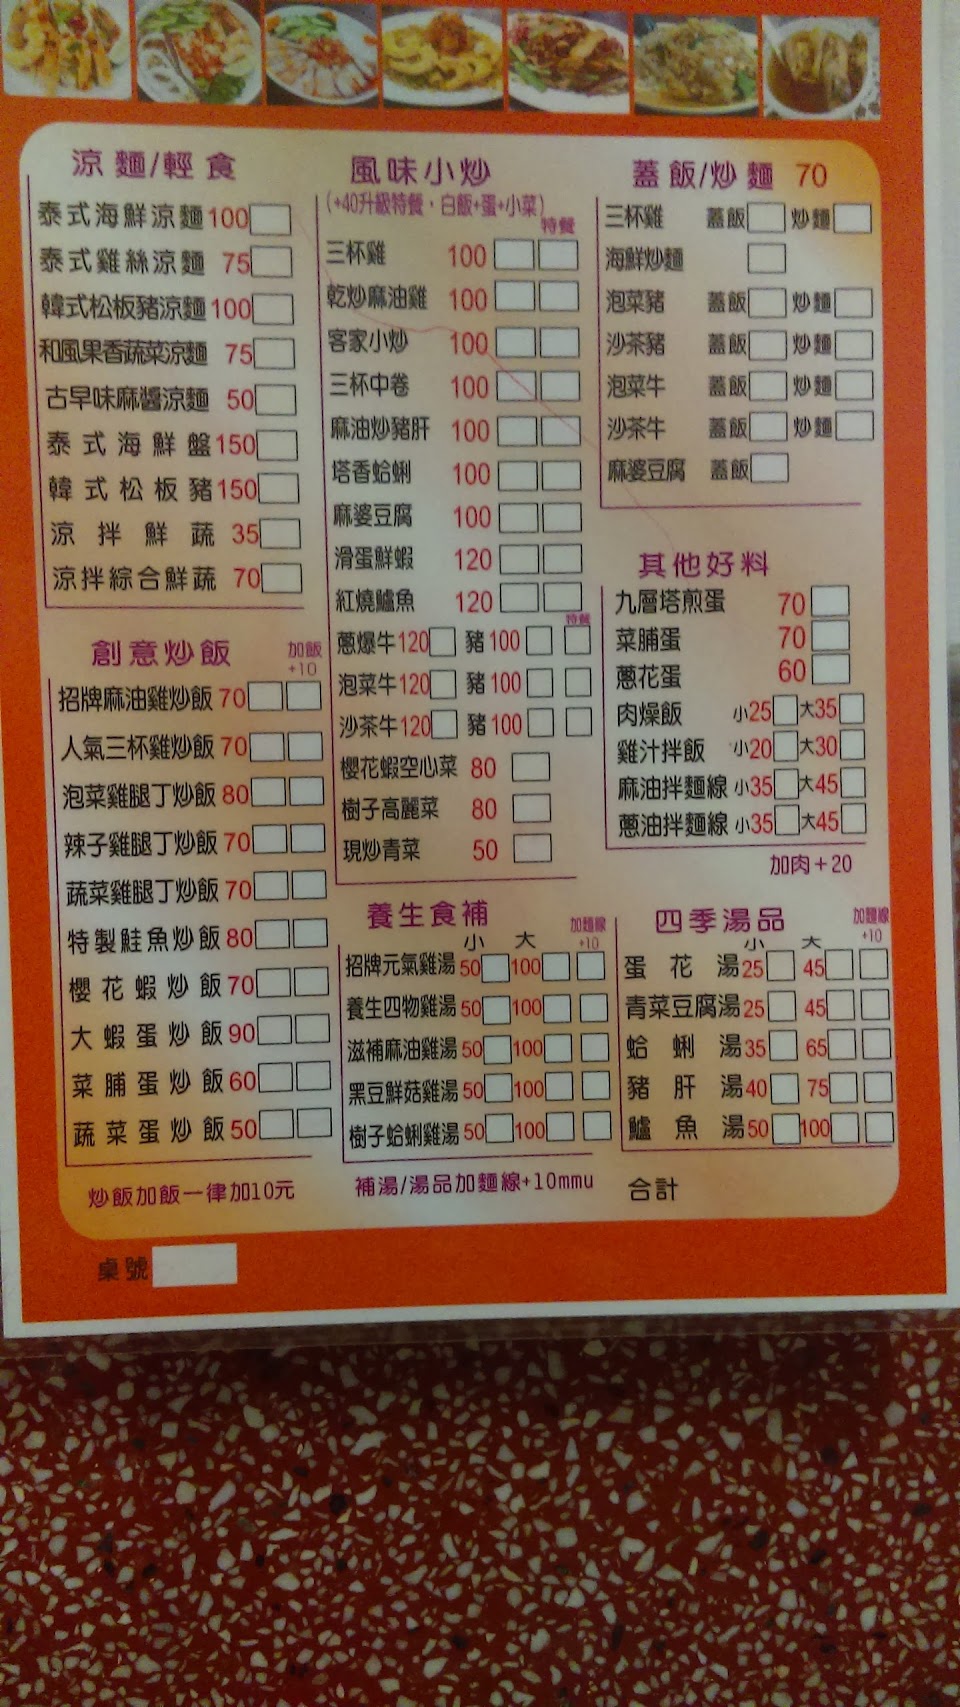 涼麵/輕食
泰式海鮮涼麵 100
泰式雞絲涼麵 75
韓式松板豬涼麵 100
和風果香蔬菜涼麵 75
古早味麻醬涼麵 50
泰式海鮮盤 150
韓式松板豬 150
涼拌鮮蔬 35
涼拌綜合鮮蔬 70
創意炒飯 加飯+10
招牌麻油雞炒飯 70
人氣三杯雞炒飯 70
泡菜雞腿丁炒飯 80
辣子雞腿丁炒飯 70
蔬菜雞腿丁炒飯 70
特製鮭魚炒飯 80
櫻花蝦炒飯 70
大蝦蛋炒飯 90
菜脯蛋炒飯 60
蔬菜蛋炒飯 50
炒飯加飯一律加10元
風味小炒
(+40升級特餐，白飯+蛋+小菜)
特餐
三杯雞 100
乾炒麻油雞 100
客家小炒 100
三杯中卷 100
麻油炒豬肝 100
塔香蛤蜊 100
麻婆豆腐 100
滑蛋鮮蝦 120
紅燒鱸魚 120
特餐
蔥爆牛 120 豬 100
泡菜牛 120 豬 100
沙茶牛 120 豬 100
櫻花蝦空心菜 80
樹子高麗菜 80
現炒青菜 50
養生食補
小 大 加麵線+10
招牌元氣雞湯 50 100
養生四物雞湯 50 100
滋補麻油雞湯 50 100
黑豆鮮菇雞湯 50 100
樹子蛤蜊雞湯 50 100
補湯/湯品加麵線+10mmu
蓋飯/炒麵 70
三杯雞 蓋飯 炒麵
海鮮炒麵
泡菜豬 蓋飯 炒麵
沙茶豬 蓋飯 炒麵
泡菜牛 蓋飯 炒麵
沙茶牛 蓋飯 炒麵
麻婆豆腐 蓋飯
其他好料
九層塔煎蛋 70
菜脯蛋 70
蔥花蛋 60
肉燥飯 小25 大35
雞汁拌飯 小20 大30
麻油拌麵線 小35 大45
蔥油拌麵線 小35 大45
加肉+20
四季湯品
小 大 加麵線+10
蛋花湯 25 45
青菜豆腐湯 25 45
蛤蜊湯 35 65
豬肝湯 40 75
鱸魚湯 50 100
合計
桌號